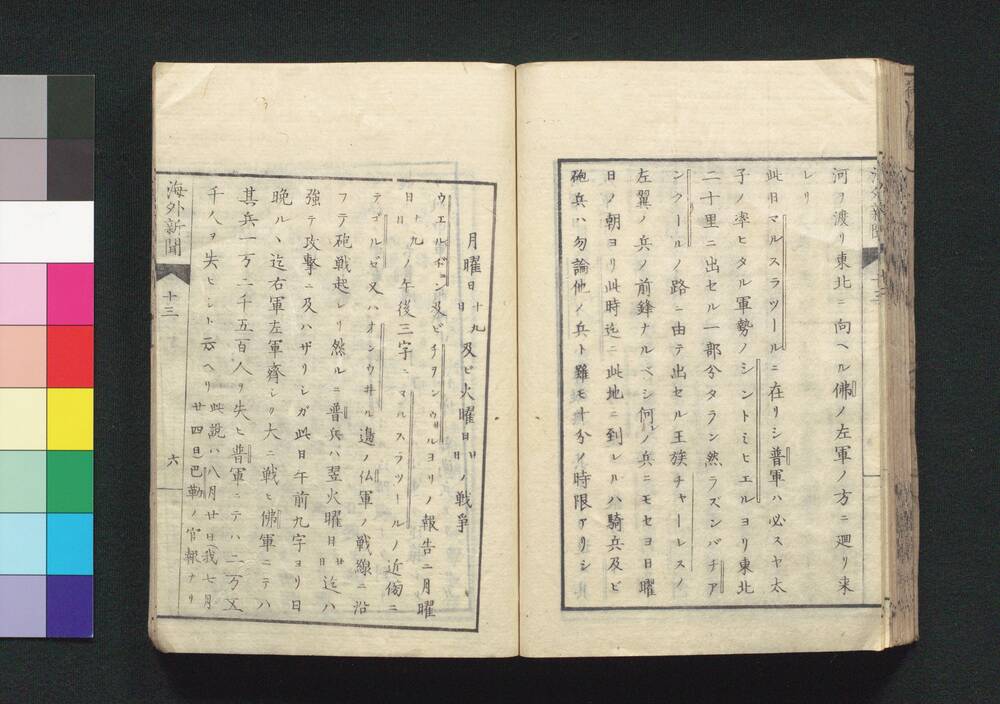 河ヲ渡リ東北ニ向ヘル佛ノ左軍ノ方ニ廻リ来
レリ
此日マルスラツールニ在リシ普軍ハ必スヤ太
子ノ率ヒタル軍勢ノシントミヒエルヨリ東北
二十里ニ出セル一部分タラン然ラズンバチア
ンクールノ路ニ由テ出セル王族チャーレスノ
左翼ノ兵ノ前鋒ナルベシ何レノ兵ニモセヨ日曜
日ノ朝ヨリ此時迄ニ此地ニ到レルハ騎兵及ビ
砲兵ハ勿論他ノ兵ト雖モ十分ノ時限アリシ
月曜日十九日及ビ火曜日廿日ノ戦争
ウエルドン及ビチヲンウヰルヨリノ報告ニ月曜
日十九日ノ午後三字ニマルスラツールノ近傍ニ
テゴルゼ又ハオンウ井ル邉ノ仏軍ノ戦線ニ沿
フテ砲戦起レリ然ルニ普兵ハ翌火曜日廿日迄ハ
強テ攻撃ニ及ハザリシガ此日午前九字ヨリ日
晩ルヽ迄右軍左軍齊シク大ニ戦ヒ佛軍ニテハ
其兵一万二千五百人ヲ失ヒ普軍ニテハ二万又
千人ヲ失ヒシト云ヘリ此説ハ八月廿日我七月
廿四日巴勒ノ官報ナリ
海外新聞
十三
六